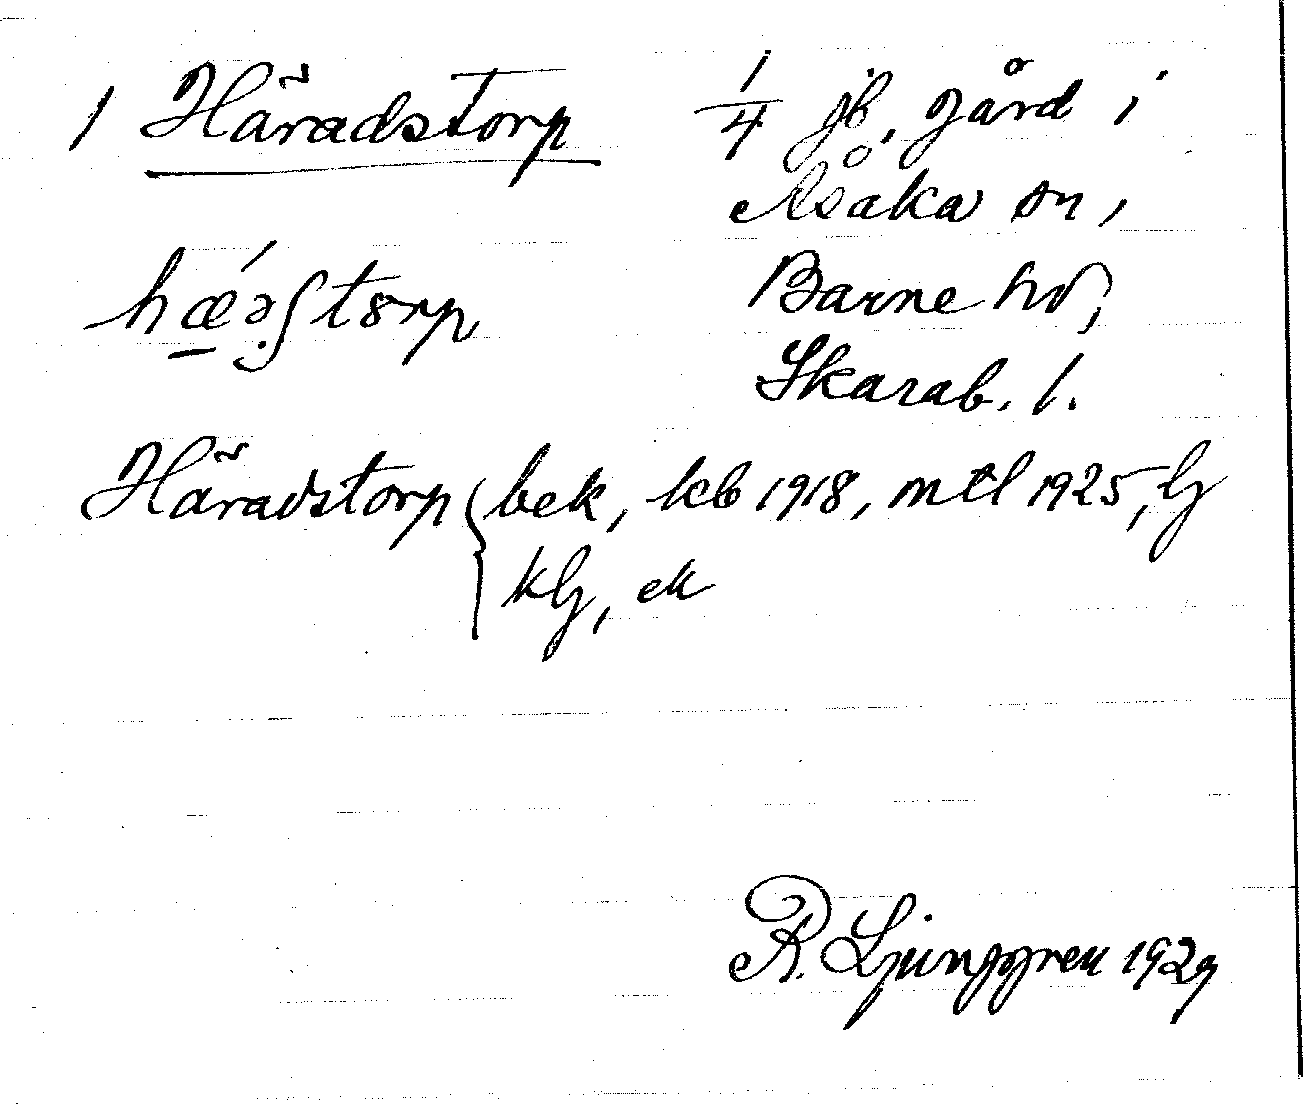 1 Häradstorp 1/4 jb, gård i
Åsaka sn,
Barne hd,
Skarab. l.
Häradstorp { bek, kb 1918, mtl 1925, lj
klj, ek
R. Ljunggren 1929